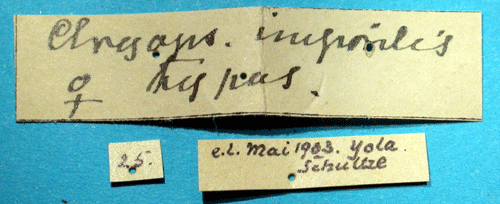 Chrysops. impar
♀ Typus.
25.
e.l. Mai 1903. Yola.
Schultze